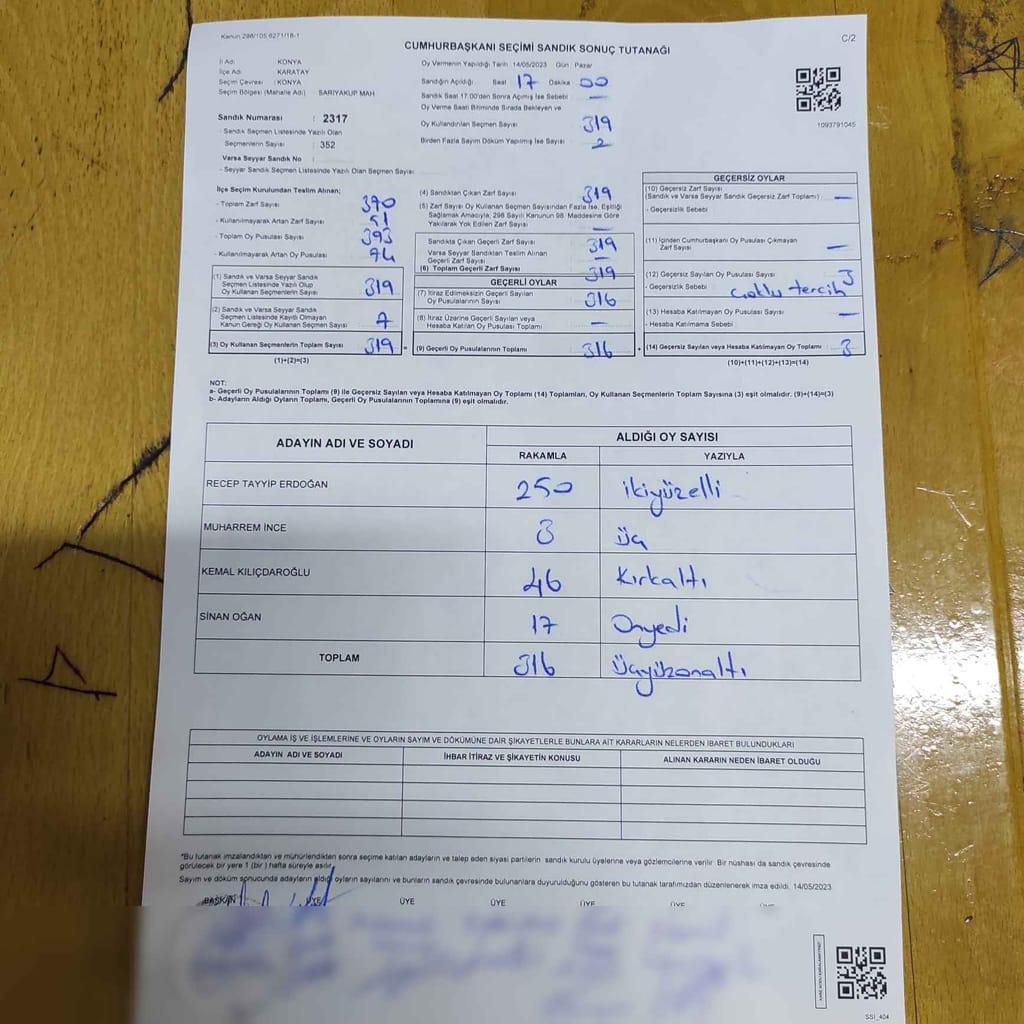 Kanun 298/105 6271/18-1
C/2
CUMHURBAŞKANI SEÇİMİ SANDIK SONUÇ TUTANAĞI
İl Adı : KONYA
İlçe Adı : KARATAY
Seçim Çevresi : KONYA
Seçim Bölgesi (Mahalle Adı) : SARIYAKUP MAH
Sandık Numarası : 2317
- Sandık Seçmen Listesinde Yazılı Olan
Seçmenlerin Sayısı : 352
Varsa Seyyar Sandık No :
- Seyyar Sandık Seçmen Listesinde Yazılı Olan Seçmen Sayısı
Oy Vermenin Yapıldığı Tarih : 14/05/2023 Gün : Pazar
Sandığın Açıldığı Saat 17 Dakika 00
Sandık Saat 17.00'den Sonra Açılmış İse Sebebi —
Oy Verme Saati Bitiminde Sırada Bekleyen ve
Oy Kullandırılan Seçmen Sayısı 319
Birden Fazla Sayım Döküm Yapılmış İse Sayısı 2
1093791045
İlçe Seçim Kurulundan Teslim Alınan;
- Toplam Zarf Sayısı 370
- Kullanılmayarak Artan Zarf Sayısı 51
- Toplam Oy Pusulası Sayısı 393
- Kullanılmayarak Artan Oy Pusulası 74
(1) Sandık ve Varsa Seyyar Sandık
Seçmen Listesinde Yazılı Olup
Oy Kullanan Seçmenlerin Sayısı 319
(2) Sandık ve Varsa Seyyar Sandık
Seçmen Listesinde Kayıtlı Olmayan
Kanun Gereği Oy Kullanan Seçmen Sayısı
(3) Oy Kullanan Seçmenlerin Toplam Sayısı 319 =
(1)+(2)=(3)
(4) Sandıktan Çıkan Zarf Sayısı 319
(5) Zarf Sayısı Oy Kullanan Seçmen Sayısından Fazla İse, Eşitliği
Sağlamak Amacıyla, 298 Sayılı Kanunun 98. Maddesine Göre
Yakılarak Yok Edilen Zarf Sayısı —
Sandıkta Çıkan Geçerli Zarf Sayısı 319
Varsa Seyyar Sandıktan Teslim Alınan
Geçerli Zarf Sayısı —
(6) Toplam Geçerli Zarf Sayısı 319
GEÇERLİ OYLAR
(7) İtiraz Edilmeksizin Geçerli Sayılan
Oy Pusulalarının Sayısı 316
(8) İtiraz Üzerine Geçerli Sayılan veya
Hesaba Katılan Oy Pusulası Toplamı —
(9) Geçerli Oy Pusulalarının Toplamı 316 +
GEÇERSİZ OYLAR
(10) Geçersiz Zarf Sayısı
(Sandık ve Varsa Seyyar Sandık Geçersiz Zarf Toplamı) —
- Geçersizlik Sebebi
(11) İçinden Cumhurbaşkanı Oy Pusulası Çıkmayan
Zarf Sayısı —
(12) Geçersiz Sayılan Oy Pusulası Sayısı 3
- Geçersizlik Sebebi çoklu tercih
(13) Hesaba Katılmayan Oy Pusulası Sayısı —
- Hesaba Katılmama Sebebi
(14) Geçersiz Sayılan veya Hesaba Katılmayan Oy Toplamı 3
(10)+(11)+(12)+(13)=(14)
NOT:
a- Geçerli Oy Pusulalarının Toplamı (9) ile Geçersiz Sayılan veya Hesaba Katılmayan Oy Toplamı (14) Toplamları, Oy Kullanan Seçmenlerin Toplam Sayısına (3) eşit olmalıdır. (9)+(14)=(3)
b- Adayların Aldığı Oyların Toplamı, Geçerli Oy Pusulalarının Toplamına (9) eşit olmalıdır.
ADAYIN ADI VE SOYADI ALDIĞI OY SAYISI
RAKAMLA YAZIYLA
RECEP TAYYİP ERDOĞAN 250 ikiyüzelli
MUHARREM İNCE 3 üç
KEMAL KILIÇDAROĞLU 46 Kırkaltı
SİNAN OĞAN 17 Onyedi
TOPLAM 316 üçyüzonaltı
OYLAMA İŞ VE İŞLEMLERİNE VE OYLARIN SAYIM VE DÖKÜMÜNE DAİR ŞİKAYETLERLE BUNLARA AİT KARARLARIN NELERDEN İBARET BULUNDUKLARI
ADAYIN ADI VE SOYADI İHBAR İTİRAZ VE ŞİKAYETİN KONUSU ALINAN KARARIN NEDEN İBARET OLDUĞU
*Bu tutanak imzalandıktan ve mühürlendikten sonra seçime katılan adayların ve talep eden siyasi partilerin sandık kurulu üyelerine veya gözlemcilerine verilir. Bir nüshası da sandık çevresinde
görülecek bir yere 1 (bir) hafta süreyle asılır.
Sayım ve döküm sonucunda adayların aldığı oyların sayılarını ve bunların sandık çevresinde bulunanlara duyurulduğunu gösteren bu tutanak tarafımızdan düzenlenerek imza edildi. 14/05/2023
BAŞKAN ÜYE ÜYE ÜYE ÜYE ÜYE ÜYE
SSI_404